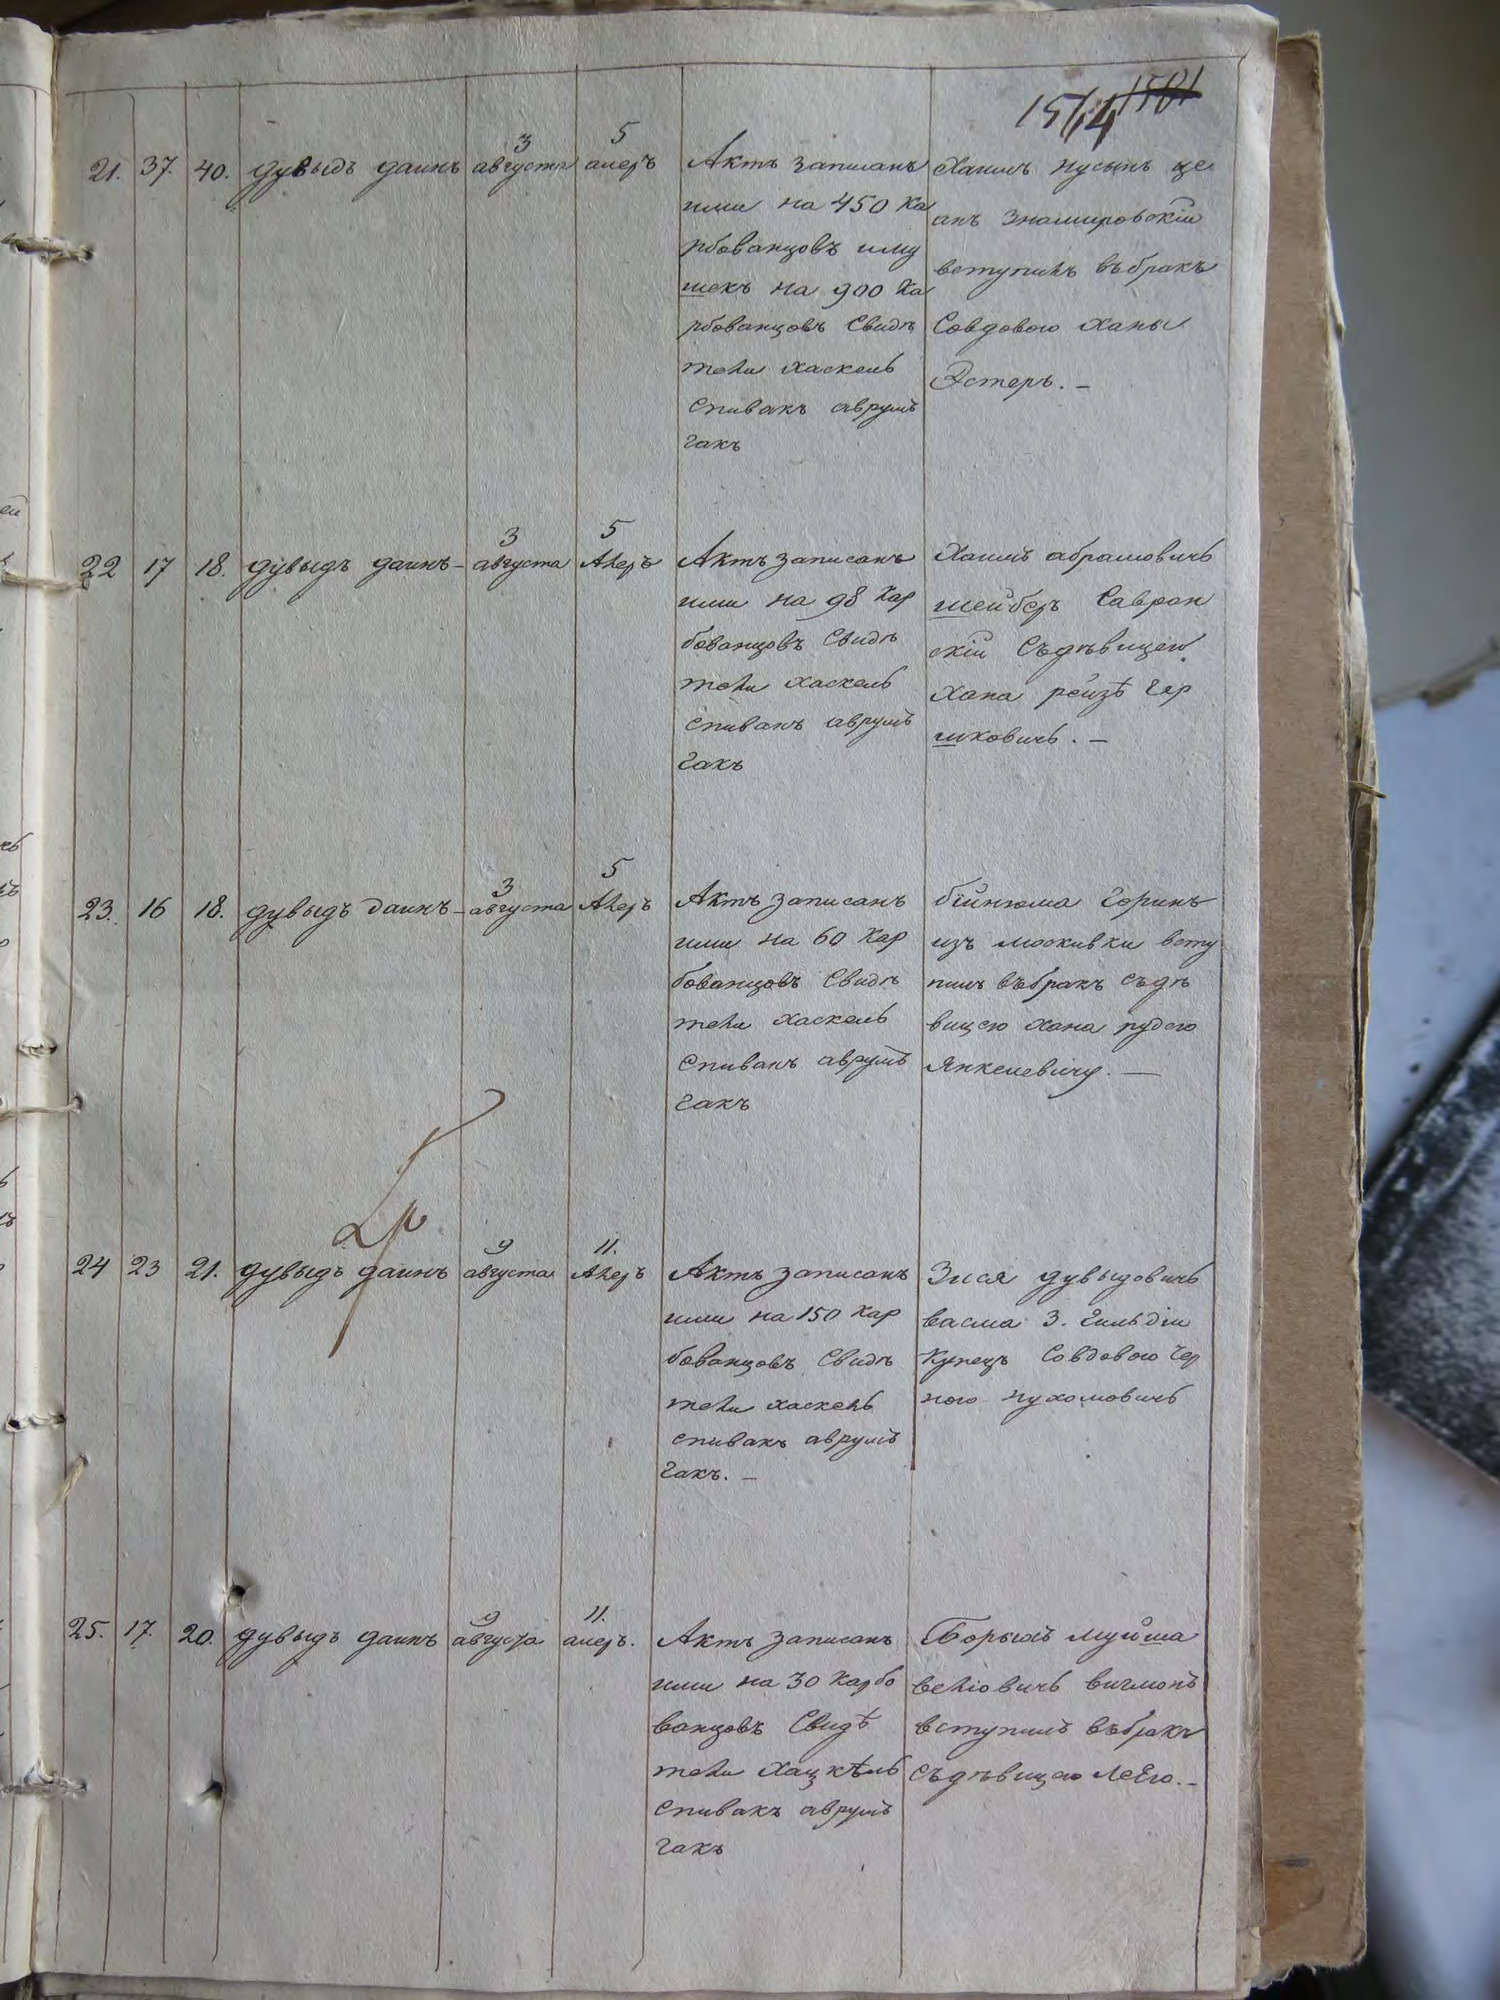 1514 1501
21. 37. 40. дувыдъ даинъ 3 августа 5 алеръ
Актъ записанъ
ими на 450 ка
рбованцовъ иму
шекъ на 900 ка
рбованцовъ свидѣ
тели хаскель
спивакъ аврумъ
гакъ
Хаимъ нусынъ це
анъ Знамировскіи
вступилъ въбракъ
Совдовою Ханы
Эстеръ. –
22 17 18. дувыдъ даинъ – 3 августа 5 Алеръ
Актъ записанъ
ими на 98 кар
бованцовъ свидѣ
тели хаскель
спивакъ аврумъ
гакъ
Хаимъ абрамовичь
шейберъ Савран
скіи Съдѣвицею
Хана рейзѣ гер
шковичь. –
23. 16 18. дувыдъ даинъ – 3 августа 5 Алеръ
Актъ записанъ
ими на 60 кар
бованцовъ свидѣ
тели хаскель
спивакъ аврумъ
гакъ
бѣйнюма Горинъ
изъ москивки всту
пилъ въбракъ съдѣ
вицею хана рудею
Янкелевичу. —
24 23 21. дувыдъ даинъ 9 августа 11. Алеръ
Актъ записанъ
ими на 150 кар
бованцовъ свидѣ
тели хаскель
спивакъ аврумъ
гакъ. –
Зися дувыдовичь
васма 3. гильдіи
Купецъ Совдовою чер
ною нухомовичь
25. 17. 20. дувыдъ даинъ 9 августа 11. алеръ.
Актъ записанъ
ими на 30 карбо
ванцовъ свидѣ
тели хацкѣль
спивакъ аврумъ
гакъ
Борыхъ муйша
веліовичь вигмонъ
вступилъ въбракъ
съдѣвицею Леею. –